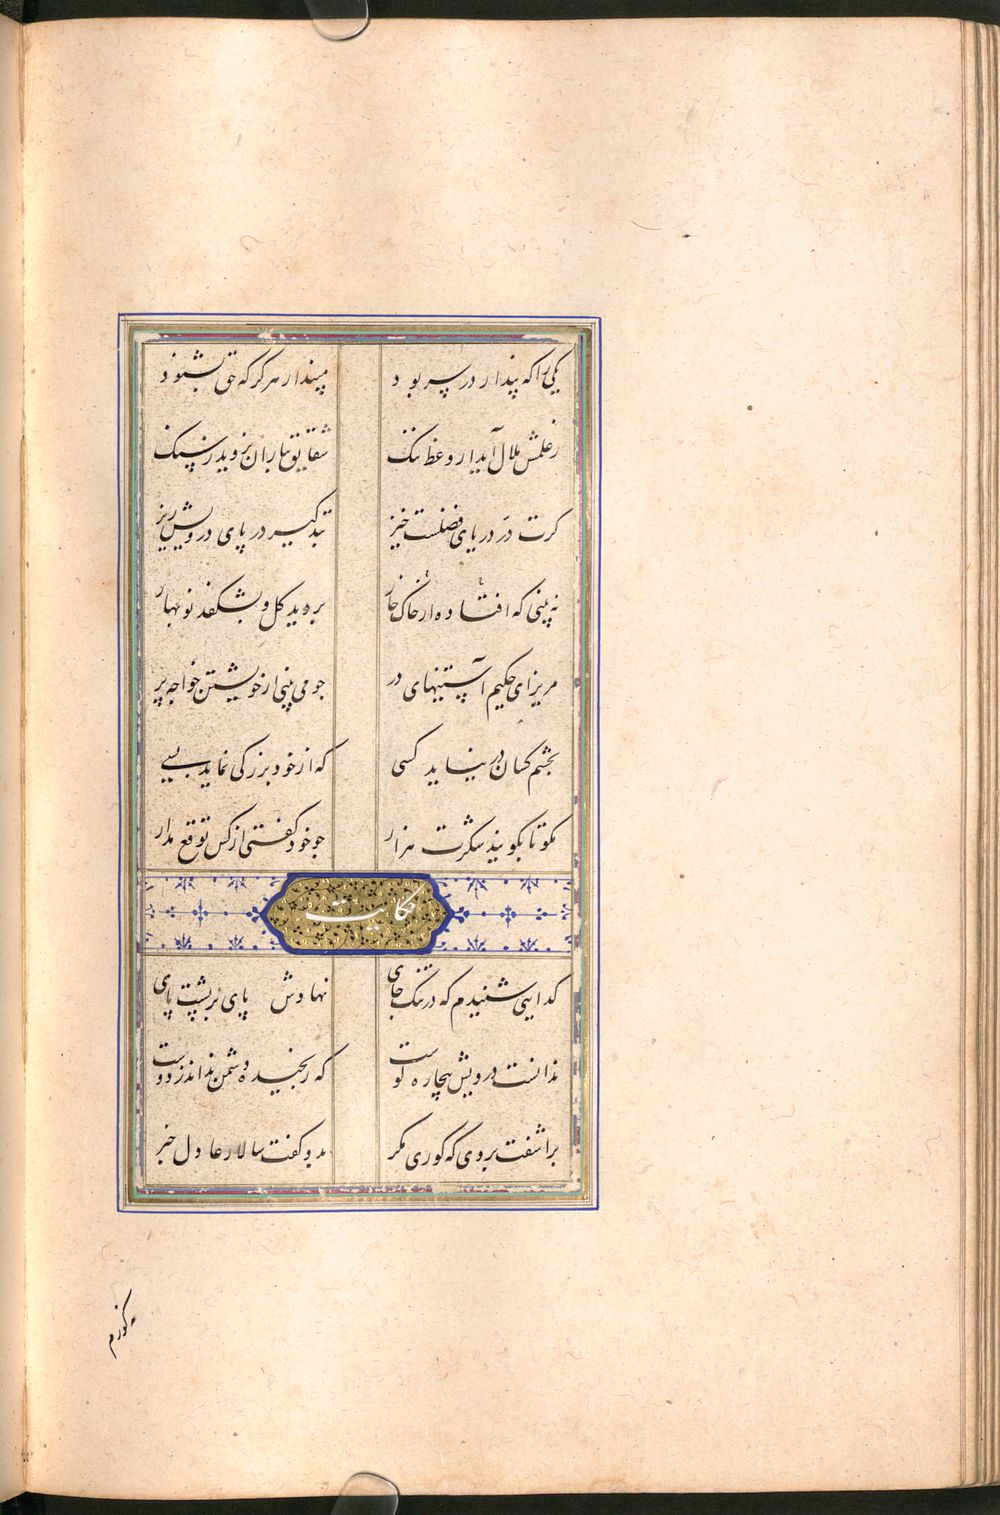 یکی را که پندار در سر بود مپندار هرگز که حق بشنود
ز علمش ملال آید از وعظ ننک شقایق بباران نروید ز سنک
کرت در دریای فضلست خیز بتذکیر در پای درویش ریز
نه بینی که افتاده از خاک خار بروید کل و بشکفد نوبهار
مریز ای حکیم آستینهای در جو می بینی از خویشتن خواجه پر
بجشم کسان در نیاید کسی که از خود بزرکی نماید بسی
مکو تا بکویند شکرت هزار جو خود کفتی از کس توقع مدار
حکایت
کدایی شنیدم که در تنک جای نهادش پای بر پشت پای
ندانست درویش بیچاره کوست که رنجیده دشمن نداند ز دوست
برآشفت بر وی که کوری مکر بدو کفت سالار عادل خبر
نه کورم